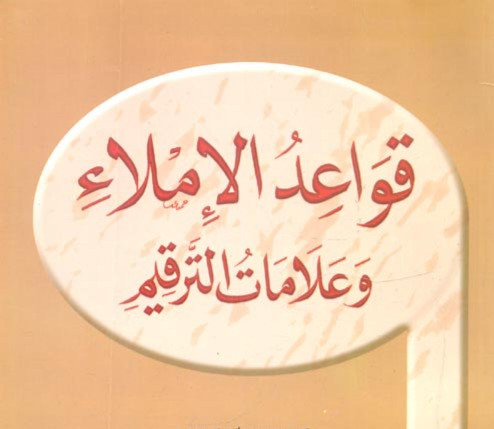 قَوَاعِدُ الإِمْلَاءِ
وَعَلَامَاتُ التَّرقِيمِ